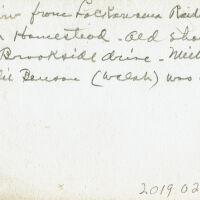 from Lackawanna Rail
Homestead - Old Sho
Brookside drive - Mill
Benson (Welsh) was
2019.02